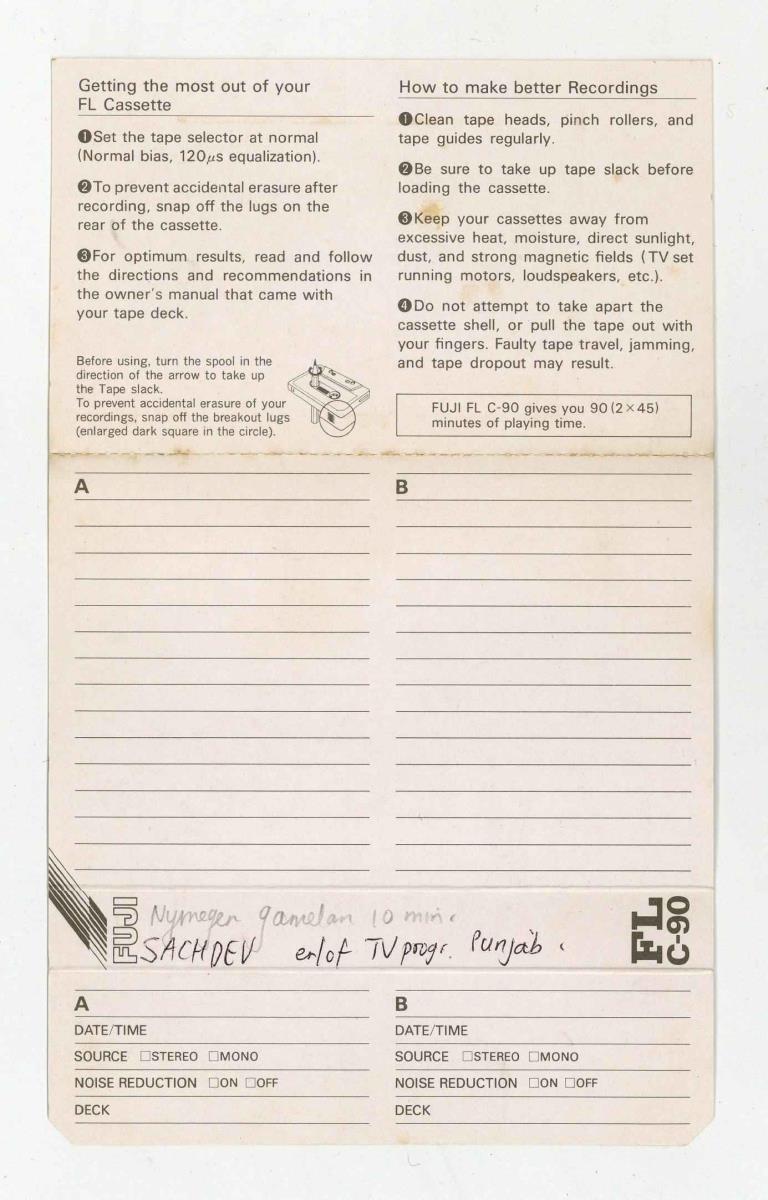 Getting the most out of your
FL Cassette
❶Set the tape selector at normal
(Normal bias, 120μs equalization).
❷To prevent accidental erasure after
recording, snap off the lugs on the
rear of the cassette.
❸For optimum results, read and follow
the directions and recommendations in
the owner's manual that came with
your tape deck.
Before using, turn the spool in the
direction of the arrow to take up
the Tape slack.
To prevent accidental erasure of your
recordings, snap off the breakout lugs
(enlarged dark square in the circle).
How to make better Recordings
❶Clean tape heads, pinch rollers, and
tape guides regularly.
❷Be sure to take up tape slack before
loading the cassette.
❸Keep your cassettes away from
excessive heat, moisture, direct sunlight,
dust, and strong magnetic fields (TV set
running motors, loudspeakers, etc.).
❹Do not attempt to take apart the
cassette shell, or pull the tape out with
your fingers. Faulty tape travel, jamming,
and tape dropout may result.
FUJI FL C-90 gives you 90 (2×45)
minutes of playing time.
A
B
FUJI
Nymegen gamelan 10 min.
SACHDEV en/of TV progr. Punjab.
FL
C-90
A
DATE/TIME
SOURCE □STEREO □MONO
NOISE REDUCTION □ON □OFF
DECK
B
DATE/TIME
SOURCE □STEREO □MONO
NOISE REDUCTION □ON □OFF
DECK